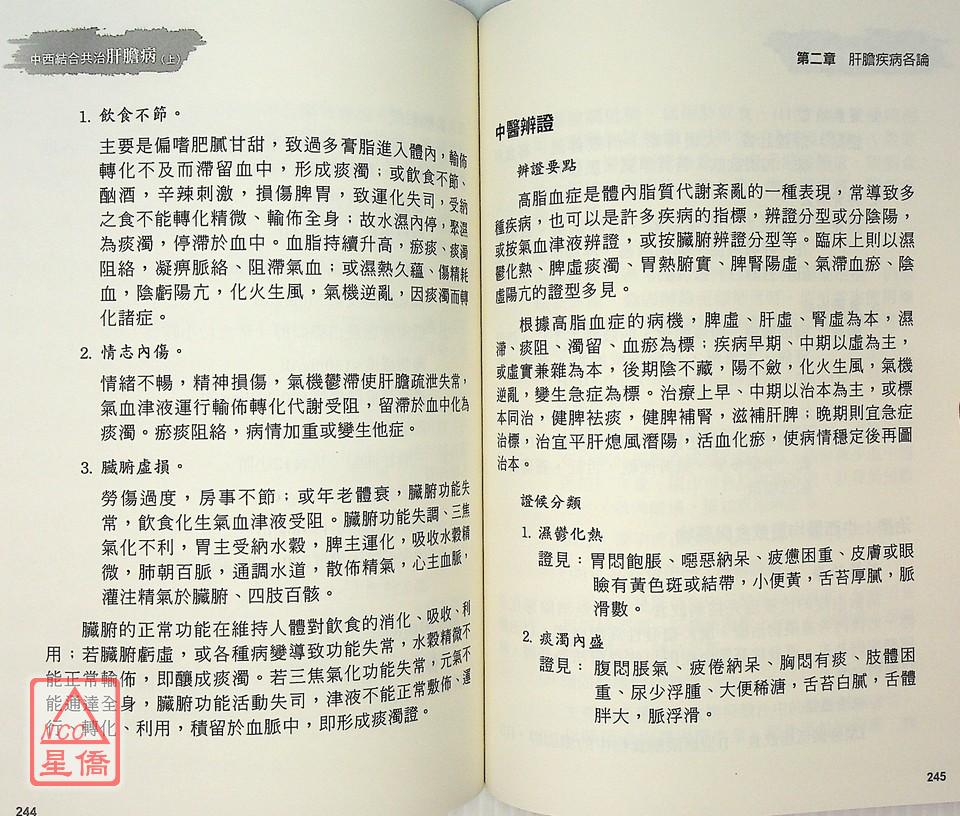 中西結合共治肝膽病(上)
1. 飲食不節。
主要是偏嗜肥膩甘甜，致過多膏脂進入體內，輸佈
轉化不及而滯留血中，形成痰濁；或飲食不節、
酗酒，辛辣刺激，損傷脾胃，致運化失司，受納
之食不能轉化精微、輸佈全身；故水濕內停，聚濕
為痰濁，停滯於血中。血脂持續升高，瘀痰、痰濁
阻絡，凝痹脈絡、阻滯氣血；或濕熱久蘊、傷精耗
血，陰虧陽亢，化火生風，氣機逆亂，因痰濁而轉
化諸症。
2. 情志內傷。
情緒不暢，精神損傷，氣機鬱滯使肝膽疏泄失常，
氣血津液運行輸佈轉化代謝受阻，留滯於血中化為
痰濁。瘀痰阻絡，病情加重或變生他症。
3. 臟腑虛損。
勞傷過度，房事不節；或年老體衰，臟腑功能失
常，飲食化生氣血津液受阻。臟腑功能失調、三焦
氣化不利，胃主受納水穀，脾主運化，吸收水穀精
微，肺朝百脈，通調水道，散佈精氣，心主血脈，
灌注精氣於臟腑、四肢百骸。
臟腑的正常功能在維持人體對飲食的消化、吸收、利
用；若臟腑虧虛，或各種病變導致功能失常，水穀精微不
能正常輸佈，即釀成痰濁。若三焦氣化功能失常，元氣不
能通達全身，臟腑功能活動失司，津液不能正常敷佈、運
行、轉化、利用，積留於血脈中，即形成痰濁證。
NCC
星僑
244
第二章 肝膽疾病各論
中醫辨證
辨證要點
高脂血症是體內脂質代謝紊亂的一種表現，常導致多
種疾病，也可以是許多疾病的指標，辨證分型或分陰陽，
或按氣血津液辨證，或按臟腑辨證分型等。臨床上則以濕
鬱化熱、脾虛痰濁、胃熱腑實、脾腎陽虛、氣滯血瘀、陰
虛陽亢的證型多見。
根據高脂血症的病機，脾虛、肝虛、腎虛為本，濕
滯、痰阻、濁留、血瘀為標；疾病早期、中期以虛為主，
或虛實兼雜為本，後期陰不藏，陽不斂，化火生風，氣機
逆亂，變生急症為標。治療上早、中期以治本為主，或標
本同治，健脾祛痰，健脾補腎，滋補肝脾；晚期則宜急症
治標，治宜平肝熄風潛陽，活血化瘀，使病情穩定後再圖
治本。
證候分類
1. 濕鬱化熱
證見：胃悶飽脹、噁惡納呆、疲憊困重、皮膚或眼
瞼有黃色斑或結帶，小便黃，舌苔厚膩，脈
滑數。
2. 痰濁內盛
證見：腹悶脹氣、疲倦納呆、胸悶有痰、肢體困
重、尿少浮腫、大便稀溏，舌苔白膩，舌體
胖大，脈浮滑。
245